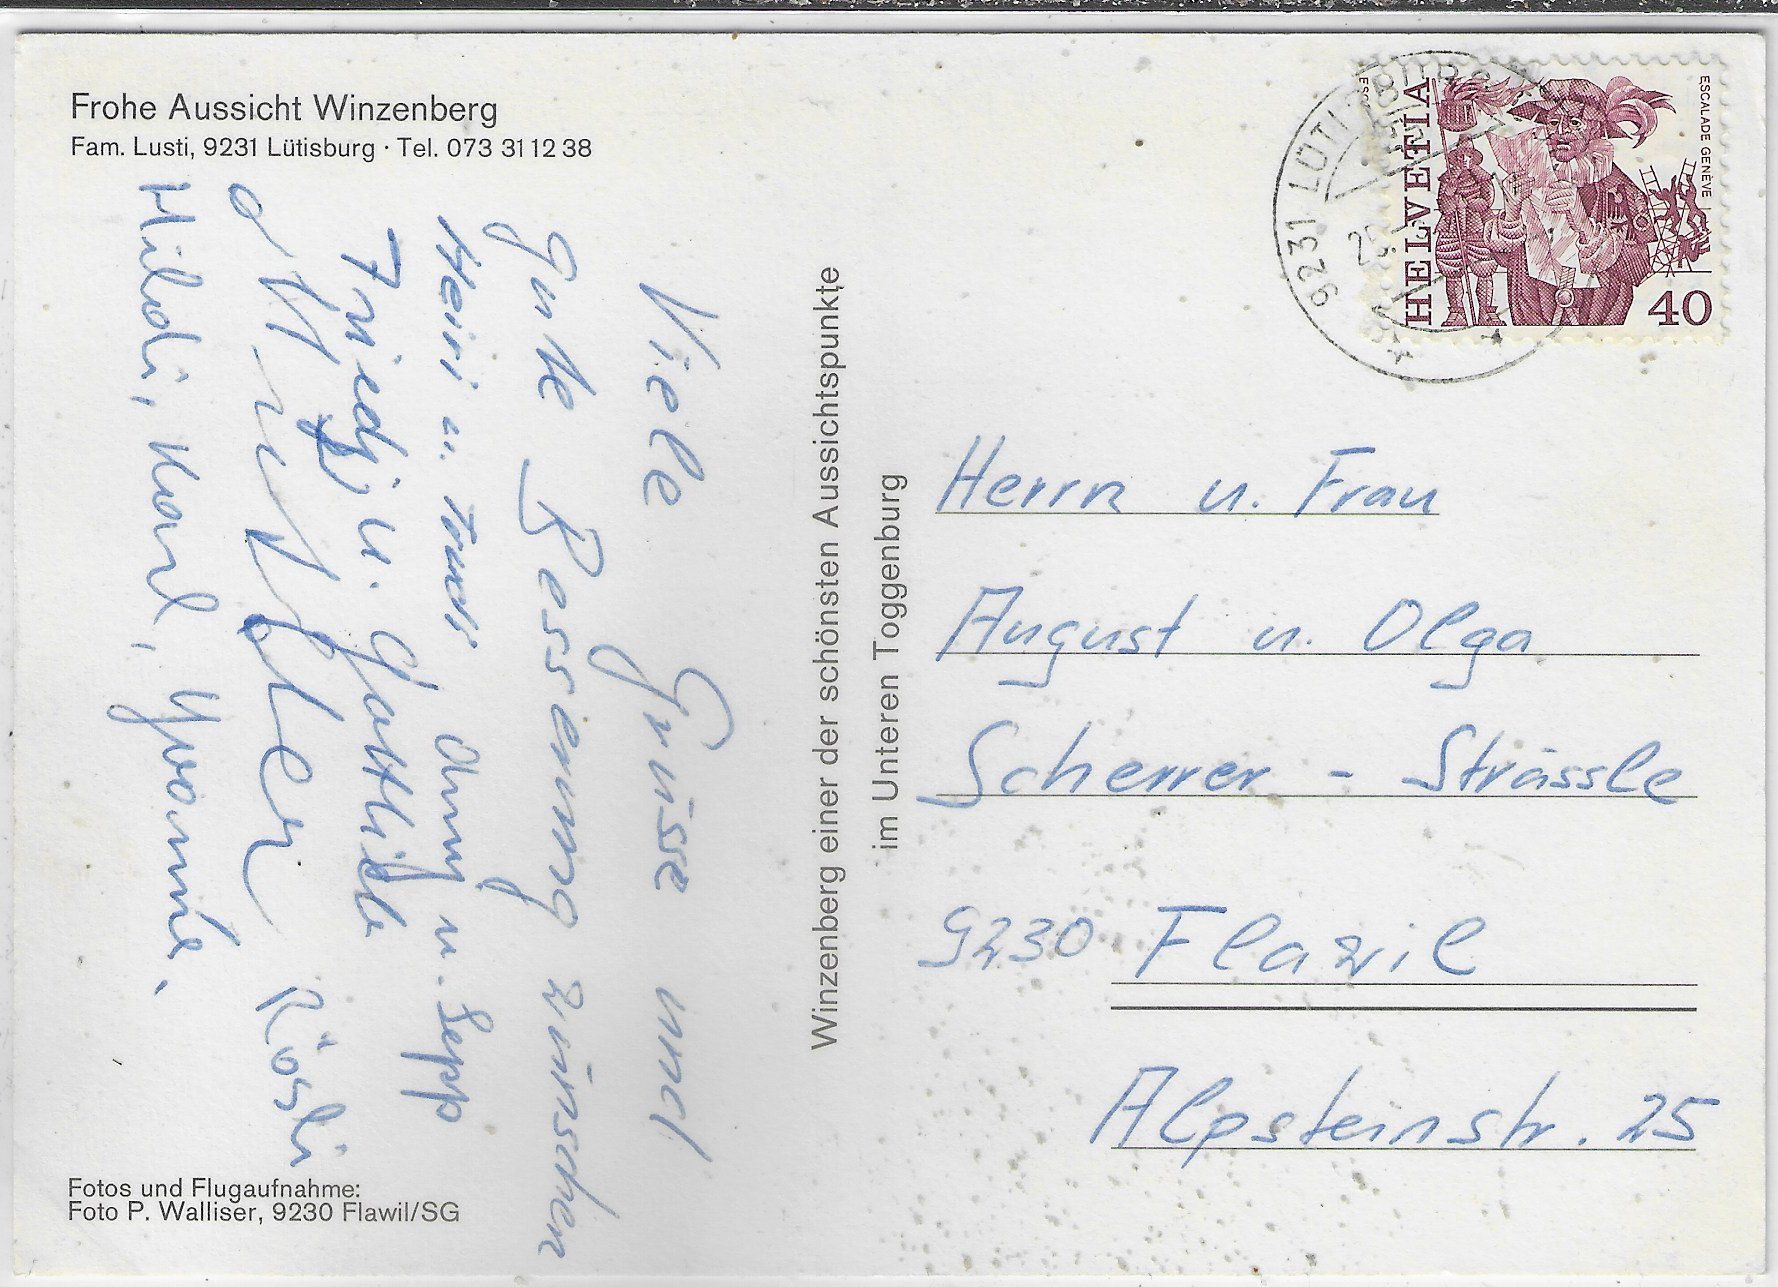 Frohe Aussicht Winzenberg
Fam. Lusti, 9231 Lütisburg · Tel. 073 31 12 38
Viele Grüsse und
gute Besserung wünschen
Heiri u. Trudi Anny u. Sepp
Friedy u. Gotthilf
Röösli
Hildi, Karl, Yvonne.
Fotos und Flugaufnahme:
Foto P. Walliser, 9230 Flawil/SG
Winzenberg einer der schönsten Aussichtspunkte
im Unteren Toggenburg
9231 LÜTISBURG
HELVETIA
ESCALADE GENÈVE
40
Herrn u. Frau
August u. Olga
Scherrer - Strässle
9230 Flawil
Alpsteinstr. 25